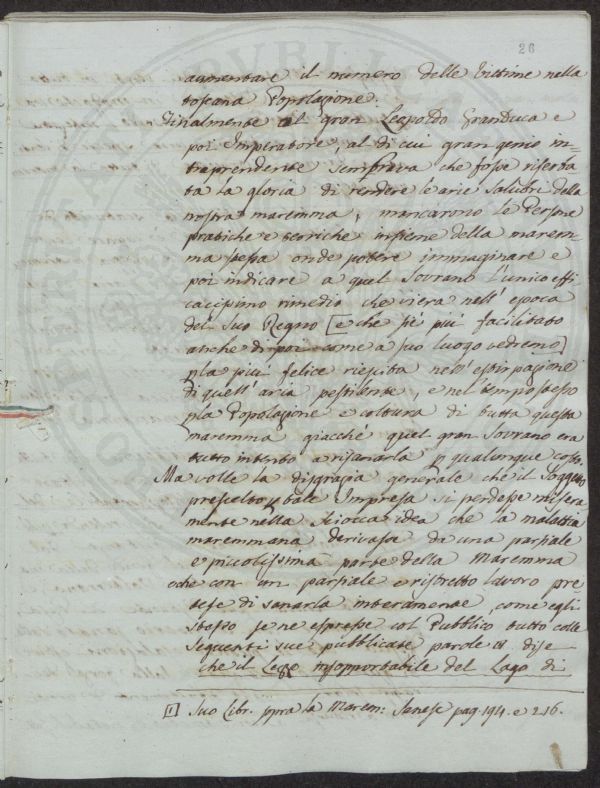 28
aumentare il numero delle Vittime nella
toscana Popolazione.
Finalmente al gran Leopoldo Granduca e
poi Imperatore, al di cui gran genio in=
traprendente sembrava che fosse riserba
ta la gloria di rendere le arie salubri della
nostra maremma, mancarono le Persone
pratiche e teoriche insieme della marem=
ma stessa onde potere immaginare e
poi indicare a quel Sovrano l'unico effi
cacissimo rimedio che viera nell'epoca
del suo Regno [e che si è più facilitato
anche di poi come a suo luogo vedremo]
pla più felice riescita nell'estirpazione
di quell'aria pestilente, e nel tempo stesso
pla Popolazione e coltura di tutta questa
maremma giacché quel gran Sovrano era
tutto intento a risanarla p qualunque costo.
Ma volle la disgrazia generale che il Sogget
prescelto p tale Impresa si perdesse misera
mente nella sciocca idea che la malattia
maremmana derivasse da una parziale
e piccolissima parte della Maremma
e che con un parziale e ristretto lavoro pre
tese di sanarla interamente, come egli
stesso se ne espresse col Pubblico tutto colle
seguenti sue pubblicate parole disse
che il Lezzo insopportabile del Lago di
[1] Suo Libr. sopra la Marem: Senese pag. 194. e 216.
SPVBLICA